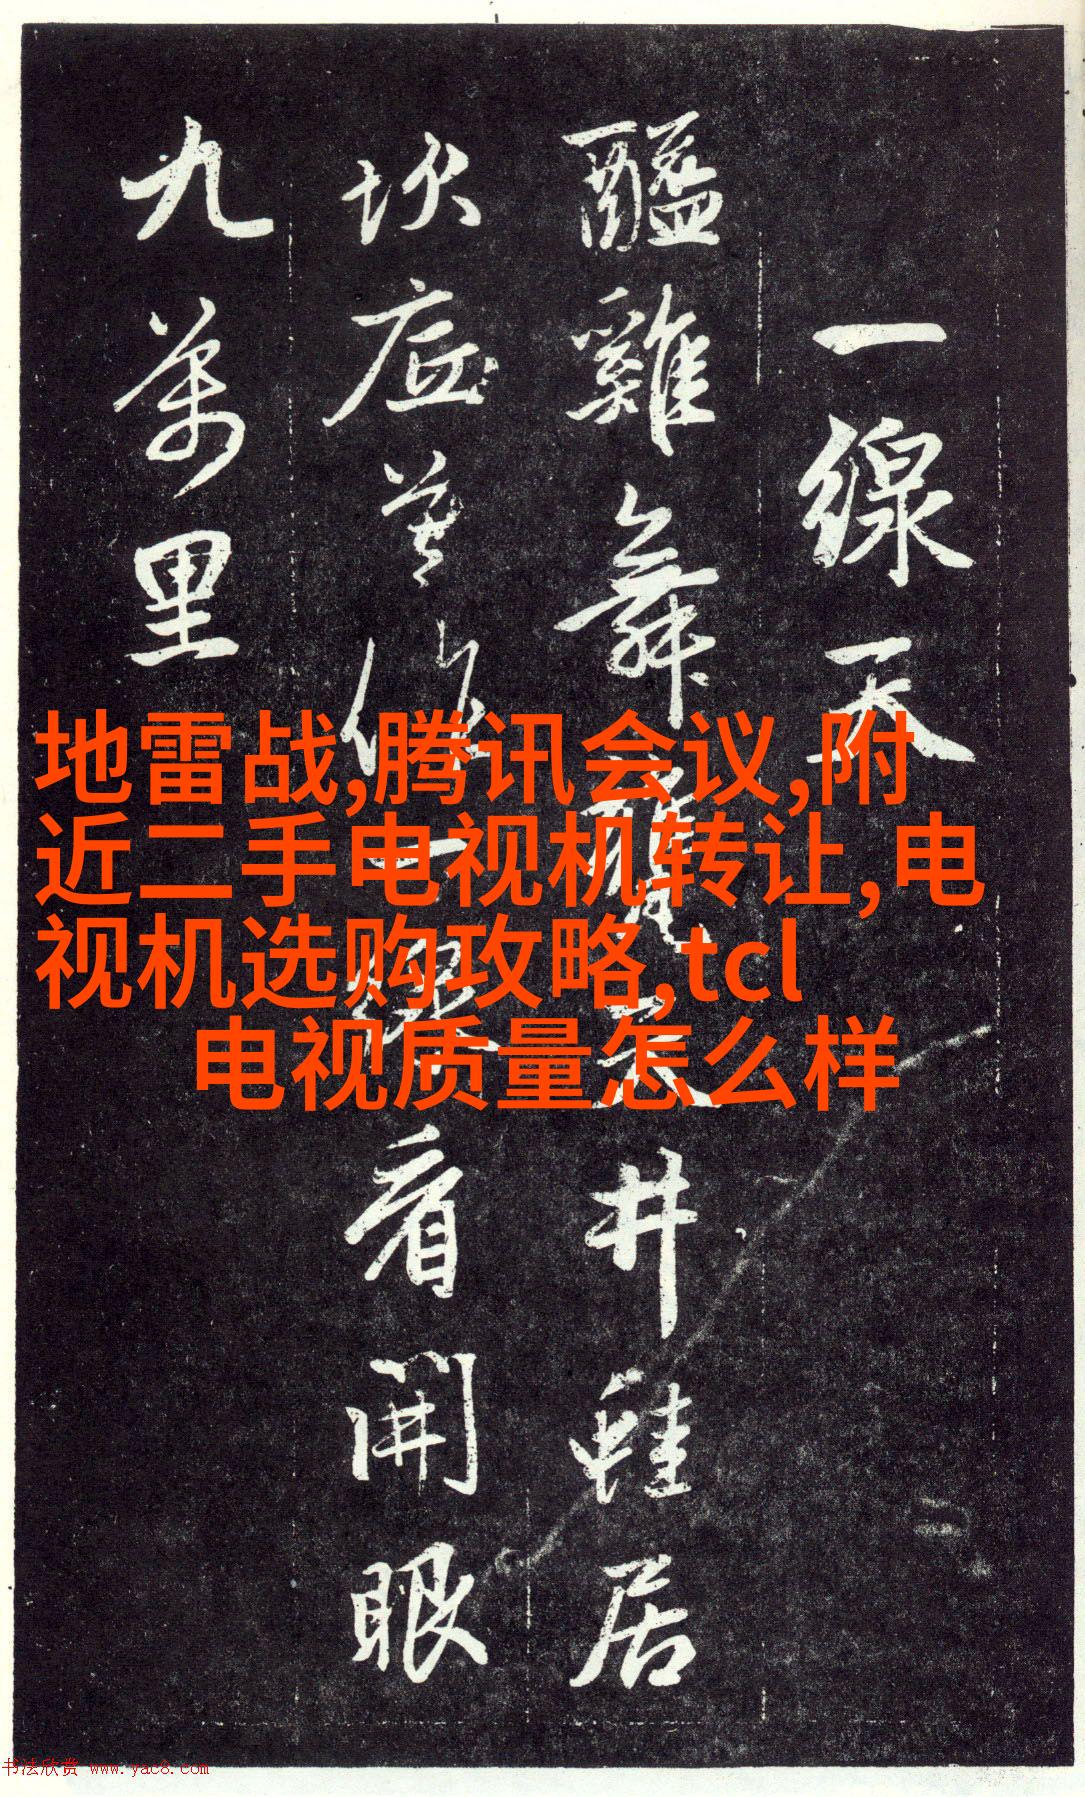 一線天
醯雞舞甕天井蛙居
坎底莫作一線看開眼
九萬里
地雷战,腾讯会议,附
近二手电视机转让,电
视机选购攻略,tcl
电视质量怎么样
书法欣赏 www.yac8.com